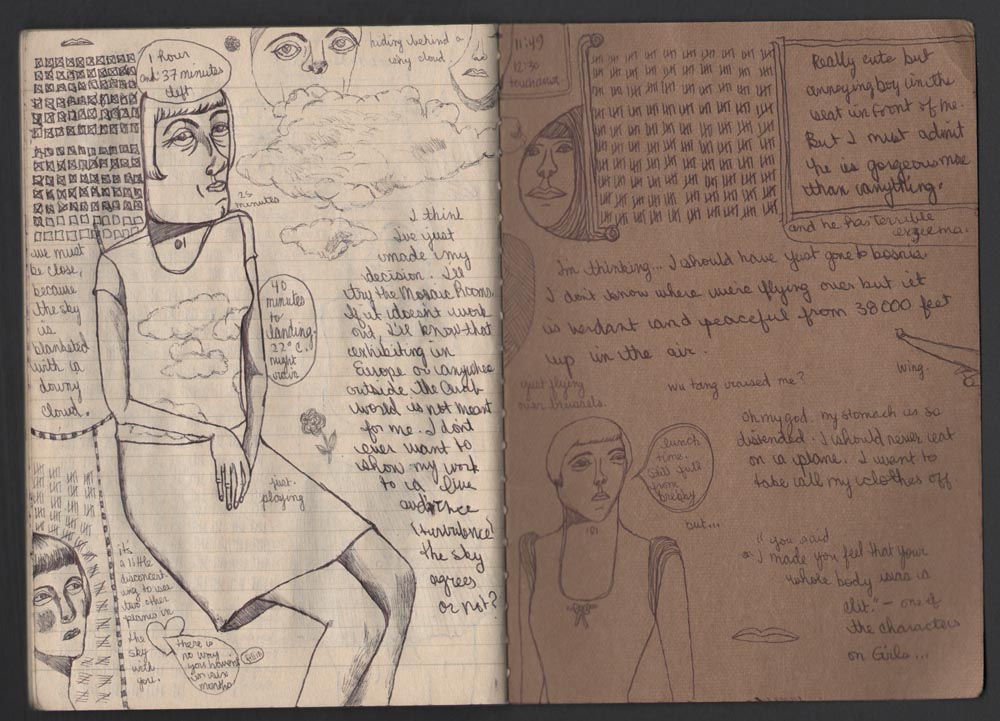 1 hour
and 37 minutes
left
hiding behind a
shy cloud
25
minutes
we must
be close,
because
the sky
is
blanketed
with a
downy
cloud.
40
minutes
to
landing.
22° C.
night
rain
I think
I've just
made my
decision. I'll
try the Mosaic Rooms
If it doesn't work
out, I'll know that
exhibiting in
Europe or anywhere
outside the Arab
world is not meant
for me. I don't
ever want to
show my work
to a live
audience
(turbulence!
the sky
agrees
or not?
just
playing
it's
a little
disconcert-
ing to see
two other
planes in
the
sky
with
you.
there is
no way
you haven't
in six
months
11:49
12:30
Really cute but
annoying boy in the
seat in front of me.
But I must admit
he is gorgeous more
than anything.
and he has terrible
exzeema.
I'm thinking... I should have just gone to bosnia.
I don't know where we're flying over but it
is verdant and peaceful from 38000 feet
up in the air.
just flying
over brussels.
wu tang cruised me?
wing.
oh my god. my stomach is so
distended. I should never eat
on a plane. I want to
take all my clothes off.
lunch
time.
still full
from
brekky
but...
"you said
I made you feel that your
whole body was a
clit." — one of
the characters
on Girls...